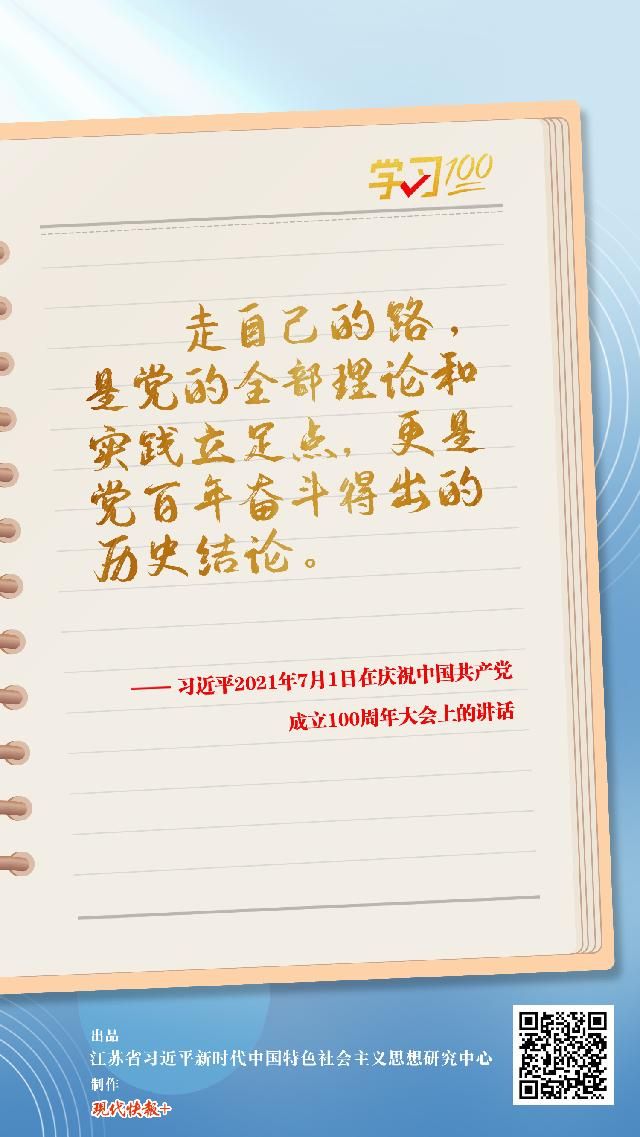 学习100
走自己的路，
是党的全部理论和
实践立足点，更是
党百年奋斗得出的
历史结论。
—— 习近平2021年7月1日在庆祝中国共产党
成立100周年大会上的讲话
出品
江苏省习近平新时代中国特色社会主义思想研究中心
制作
现代快报+